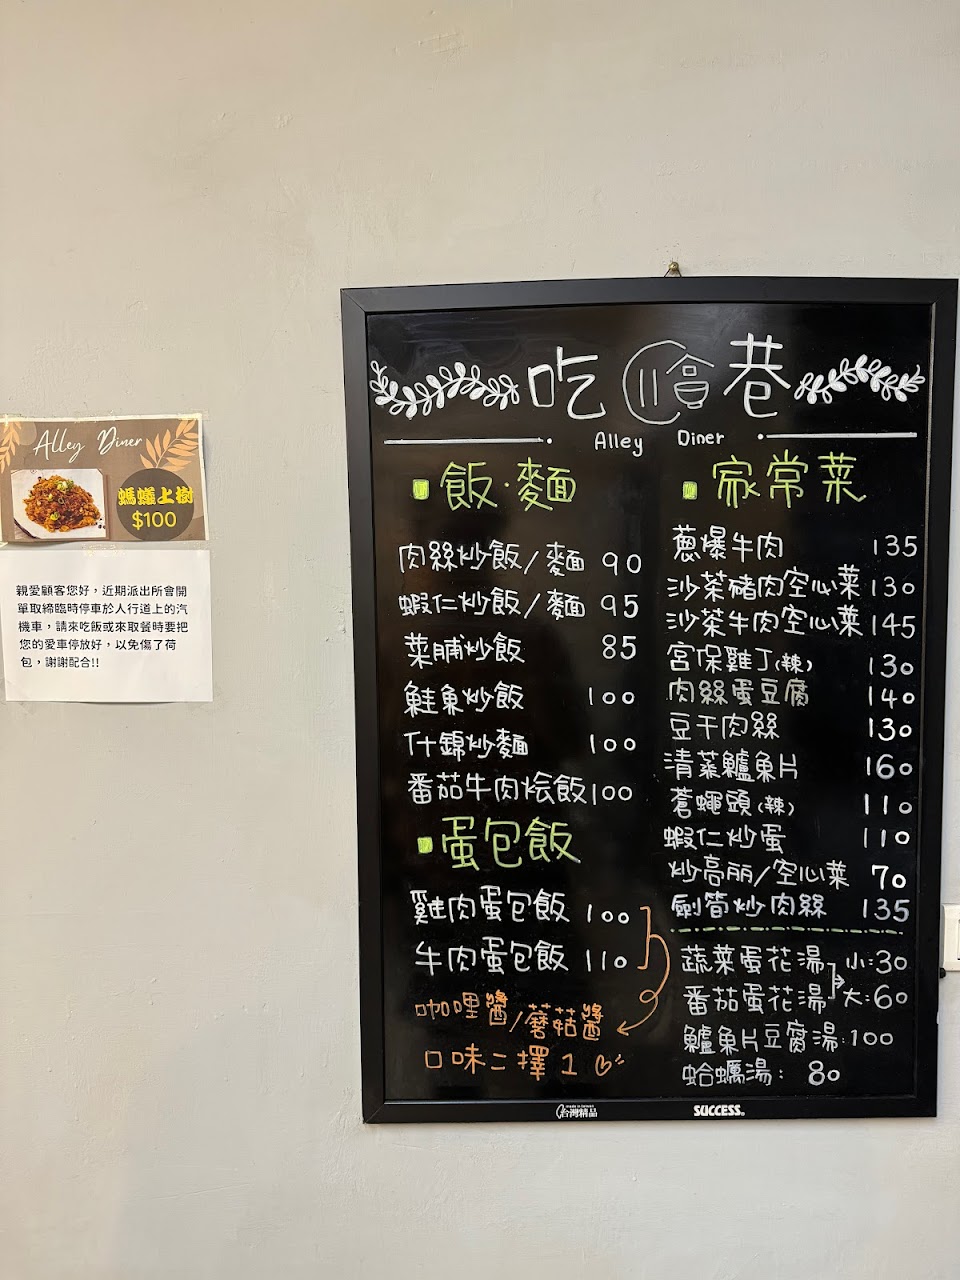 Alley Diner
螞蟻上樹
$100
親愛顧客您好，近期派出所會開
單取締臨時停車於人行道上的汽
機車，請來吃飯或來取餐時要把
您的愛車停放好，以免傷了荷
包，謝謝配合!!
吃 巷
Alley Diner
飯·麵
肉絲炒飯/麵 90
蝦仁炒飯/麵 95
菜脯炒飯 85
鮭魚炒飯 100
什錦炒麵 100
番茄牛肉烩飯 100
蛋包飯
雞肉蛋包飯 100
牛肉蛋包飯 110
咖哩醬/蘑菇醬
口味二擇1
家常菜
蔥爆牛肉 135
沙茶豬肉空心菜 130
沙茶牛肉空心菜 145
宮保雞丁(辣) 130
肉絲蛋豆腐 140
豆干肉絲 130
清蒸鱸魚片 160
蒼蠅頭(辣) 110
蝦仁炒蛋 110
炒高丽/空心菜 70
劍筍炒肉絲 135
蔬菜蛋花湯 小:30
番茄蛋花湯 大:60
鱸魚片豆腐湯:100
蛤蠣湯: 80
made in taiwan
台灣精品
SUCCESS